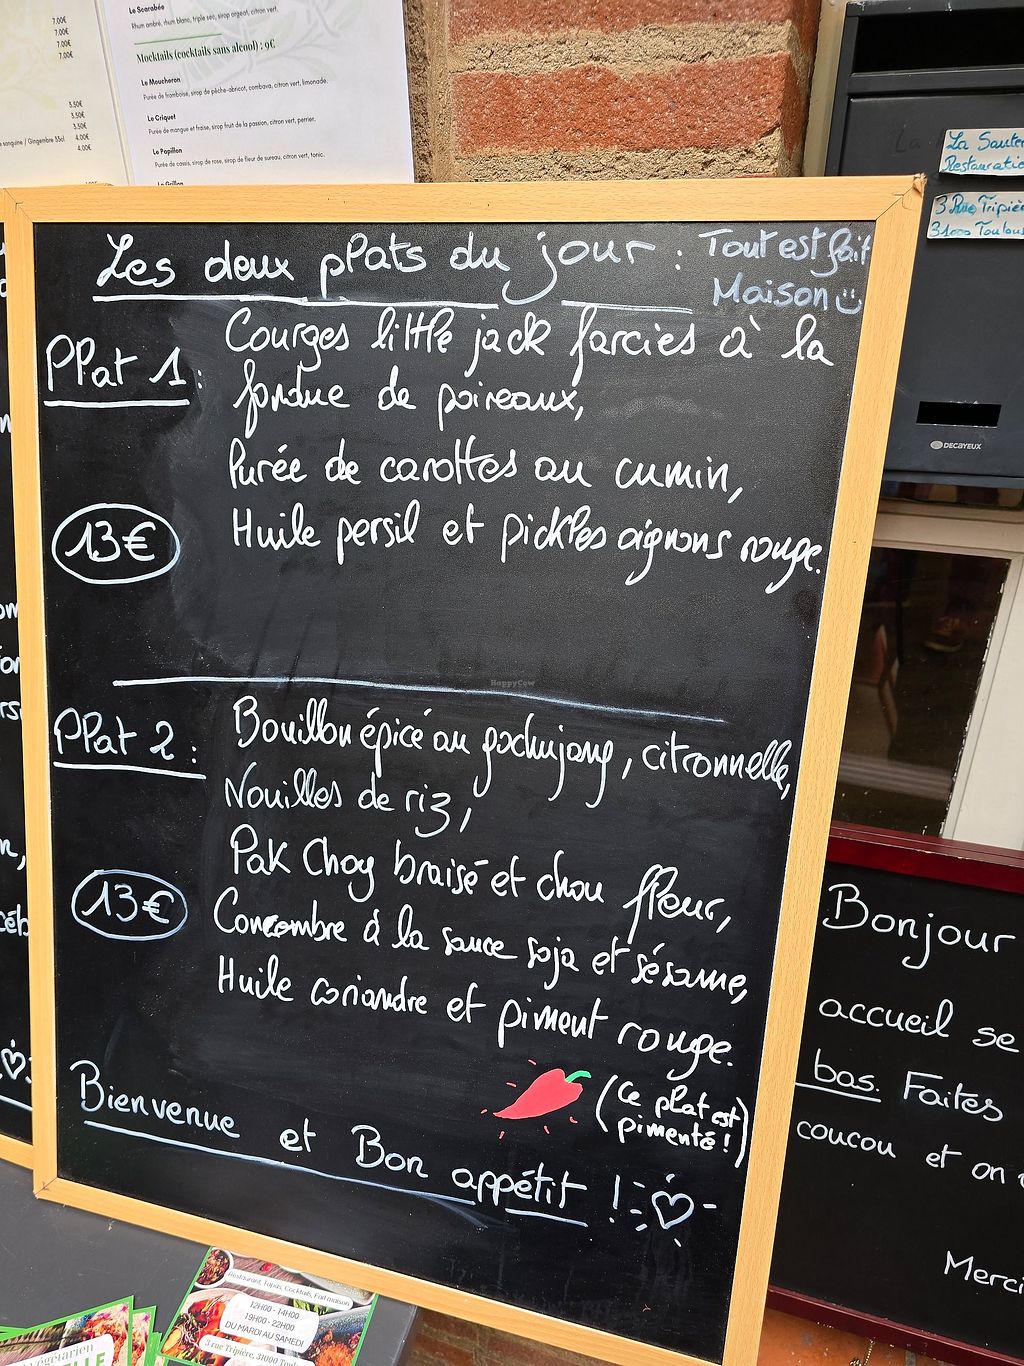 7.00€
7.00€
7.00€
7.00€
3.50€
3.50€
3.50€
sanguine / Gingembre 33cl 4.00€
4.00€
Le Scarabée
Rhum ambré, rhum blanc, triple sec, sirop argeat, citron vert.
Mocktails (cocktails sans alcool) : 9€
Le Moucheron
Purée de framboise, sirop de pêche-abricot, combava, citron vert, limonade.
Le Criquet
Purée de mangue et fraise, sirop fruit de la passion, citron vert, perrier.
Le Papillon
Purée de cassis, sirop de rose, sirop de fleur de sureau, citron vert, tonic.
Le Grillon
La Sauter
Restauratio
3 Rue Tripièr
31000 Toulous
DECAYEUX
Les deux plats du jour : Tout est fait
Maison
Plat 1 : Courges little jack farcies à la
fondue de poireaux,
Purée de carottes au cumin,
13€ Huile persil et pickles oignons rouge.
HappyCow
Plat 2 : Bouillon épicé au gochujang, citronnelle,
Nouilles de riz,
Pak Choy braisé et chou fleur,
13€ Concombre à la sauce soja et sésame,
Huile coriandre et piment rouge.
(Ce plat est
pimenté !)
Bienvenue et Bon appétit !
Bonjour
accueil se
bas. Faites
coucou et on
Merci
Restaurant, Tapas, Cocktails, Fait maison
12H00 - 14H00
19H00 - 22H00
DU MARDI AU SAMEDI
3 rue Tripière, 31000 Toul
végétarien